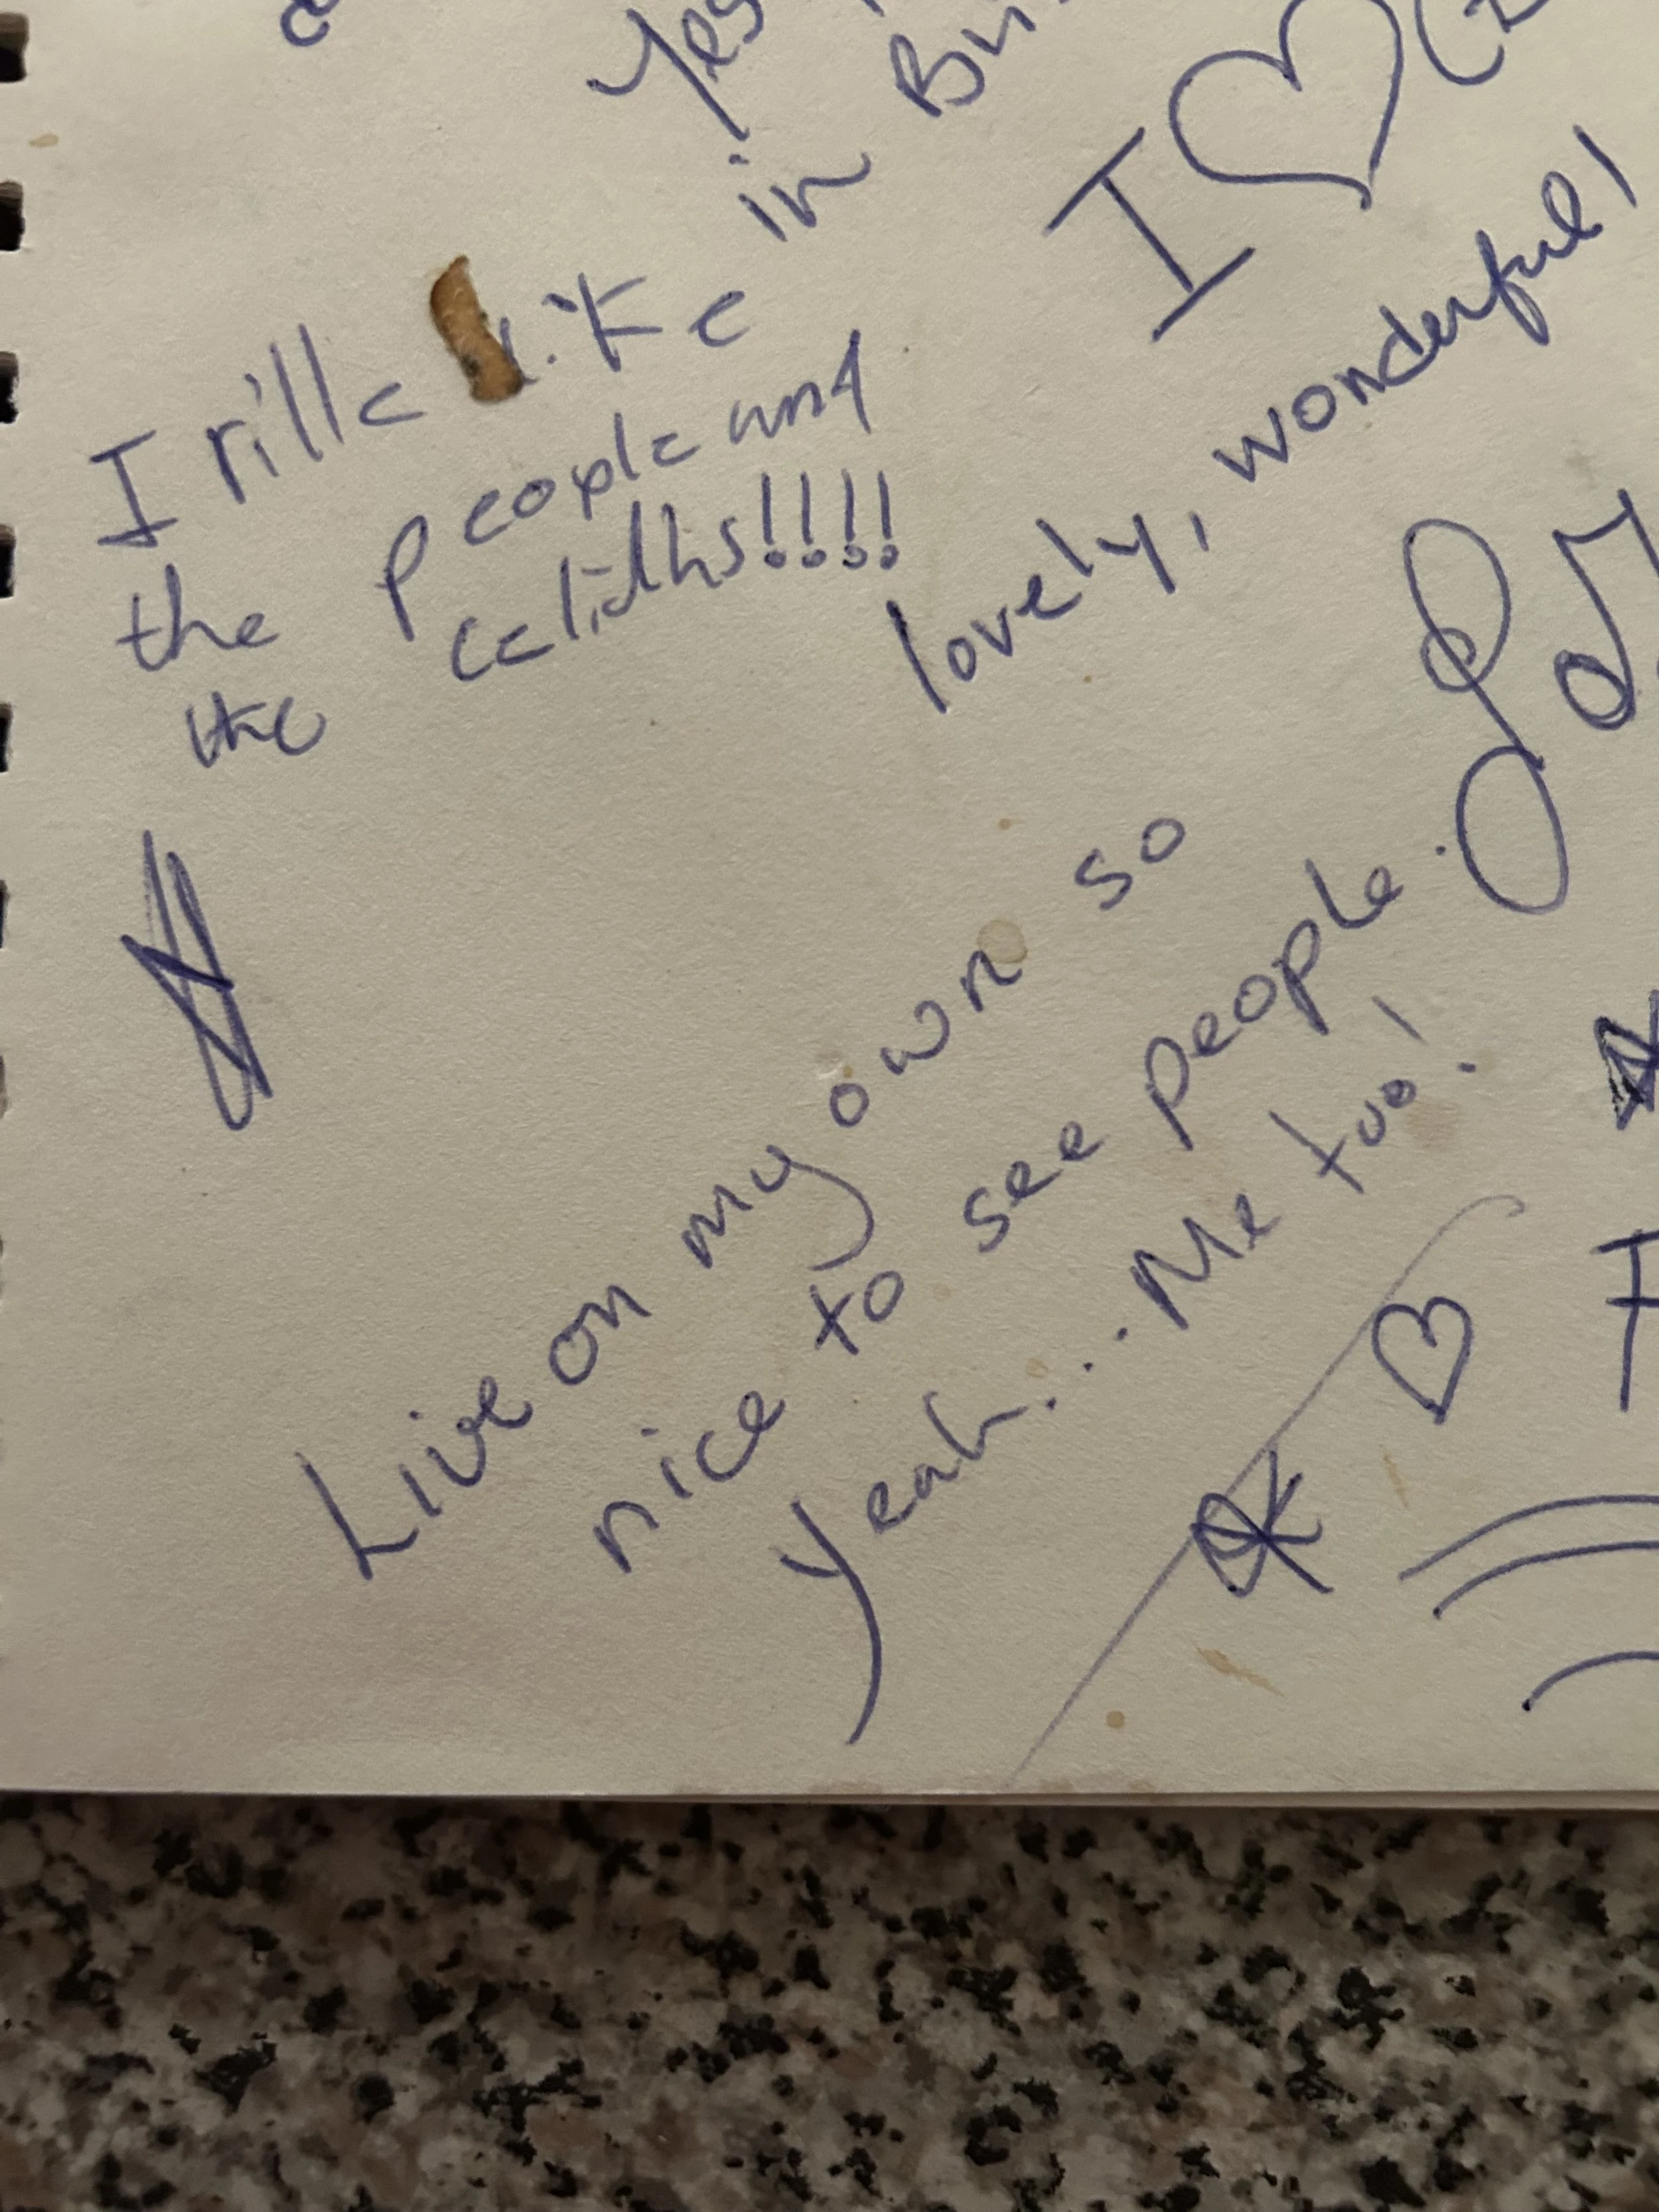 Yes
in
I ♡
I rille like
the people and
the
lovely, wonderful!
Live on my own so
nice to see people.
Yeah.... Me too!